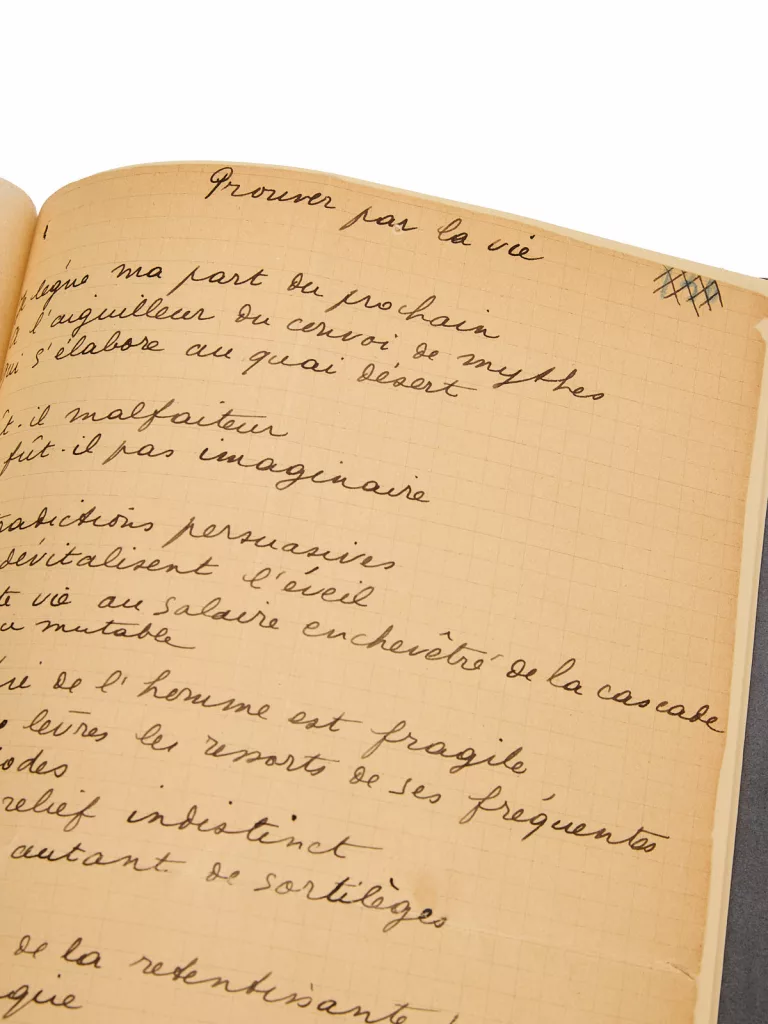 Prouver par la vie
légue ma part du prochain
l'aiguilleur du convoi de mythes
s'élabore au quai désert
malfaiteur
fût-il pas imaginaire
persuasives
dévitalisent l'éveil
vie au salaire enchevêtré de la cascade
mutable
de l'homme est fragile
lèvres les ressorts de ses fréquentes
relief indistinct
autant de sortilèges
de la retentissante